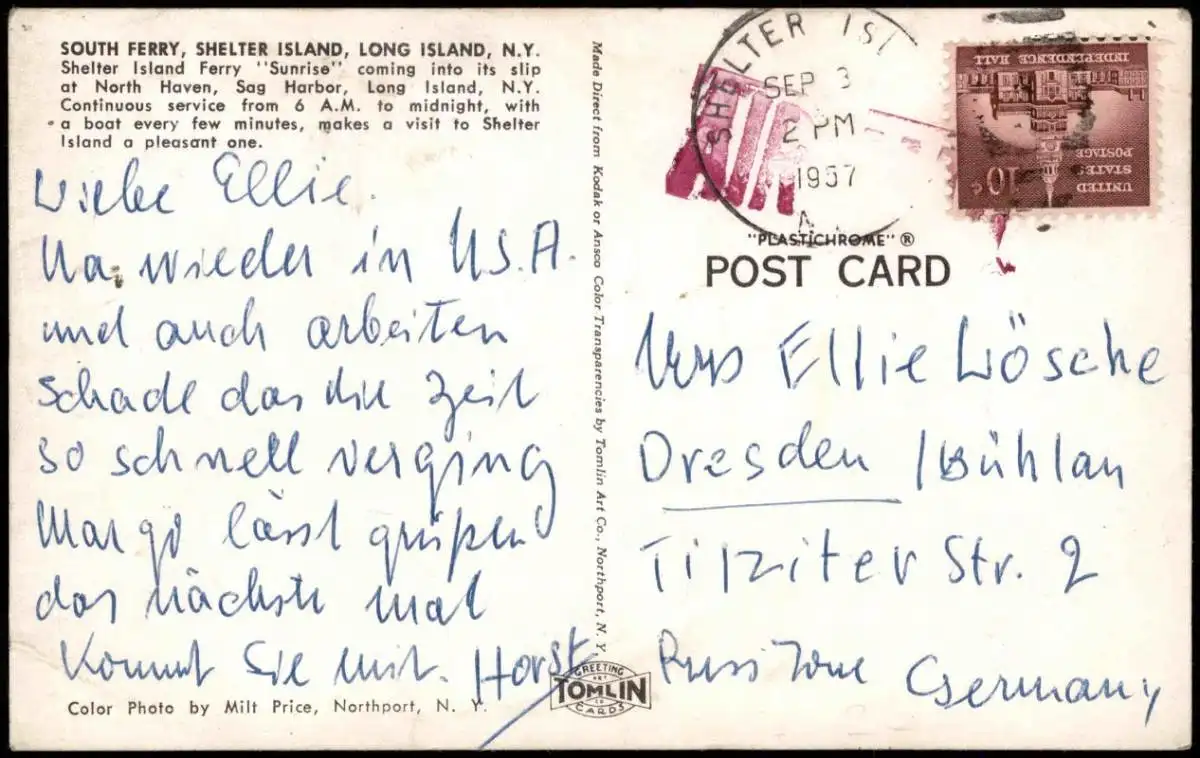 SOUTH FERRY, SHELTER ISLAND, LONG ISLAND, N.Y.
Shelter Island Ferry "Sunrise" coming into its slip
at North Haven, Sag Harbor, Long Island, N.Y.
Continuous service from 6 A.M. to midnight, with
a boat every few minutes, makes a visit to Shelter
Island a pleasant one.
Liebe Ellie.
Na wieder in U.S.A.
und auch arbeiten
schade das die Zeit
so schnell verging
Margo lässt grüßen
das nächste mal
kommt Sie mit. Horst
Color Photo by Milt Price, Northport, N. Y.
Made Direct from Kodak or Ansco Color Transparencies by Tomlin Art Co., Northport, N. Y.
GREETING
ART
TOMLIN
CO
CARDS
SHELTER ISL
SEP 3
2 PM
1957
INDEPENDENCE HALL
UNITED
STATES
POSTAGE
10¢
"PLASTICHROME"®
POST CARD
Mrs Ellie Lösche
Dresden / Bühlau
Tilziter Str. 2
Russ Zone Germany